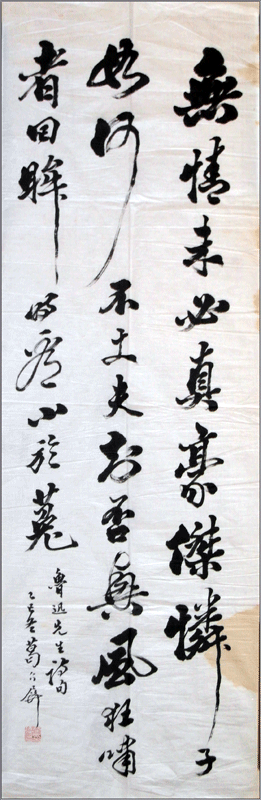 無情未必真豪傑憐子
如何不丈夫知否興風狂嘯
者回眸時看小於菟
魯迅先生詩句
葛介屏